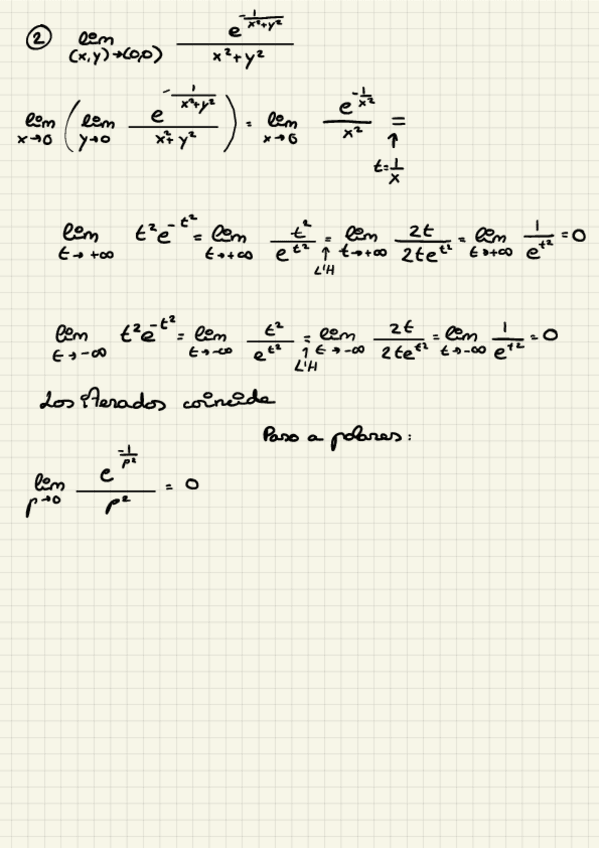 ② lim (x,y)→(0,0) e^(-1/(x²+y²)) / (x²+y²)
lim x→0 ( lim y→0 e^(-1/(x²+y²)) / (x²+y²) ) = lim x→0 e^(-1/x²) / x² = ↑ t=1/x
lim t→+∞ t²e^(-t²) = lim t→+∞ t²/e^(t²) = ↑ L'H lim t→+∞ 2t/(2te^(t²)) = lim t→+∞ 1/e^(t²) = 0
lim t→-∞ t²e^(-t²) = lim t→-∞ t²/e^(t²) = ↑ L'H lim t→-∞ 2t/(2te^(t²)) = lim t→-∞ 1/e^(t²) = 0
Los iterados coincide
Paso a polares:
lim ρ→0 e^(-1/ρ²) / ρ² = 0